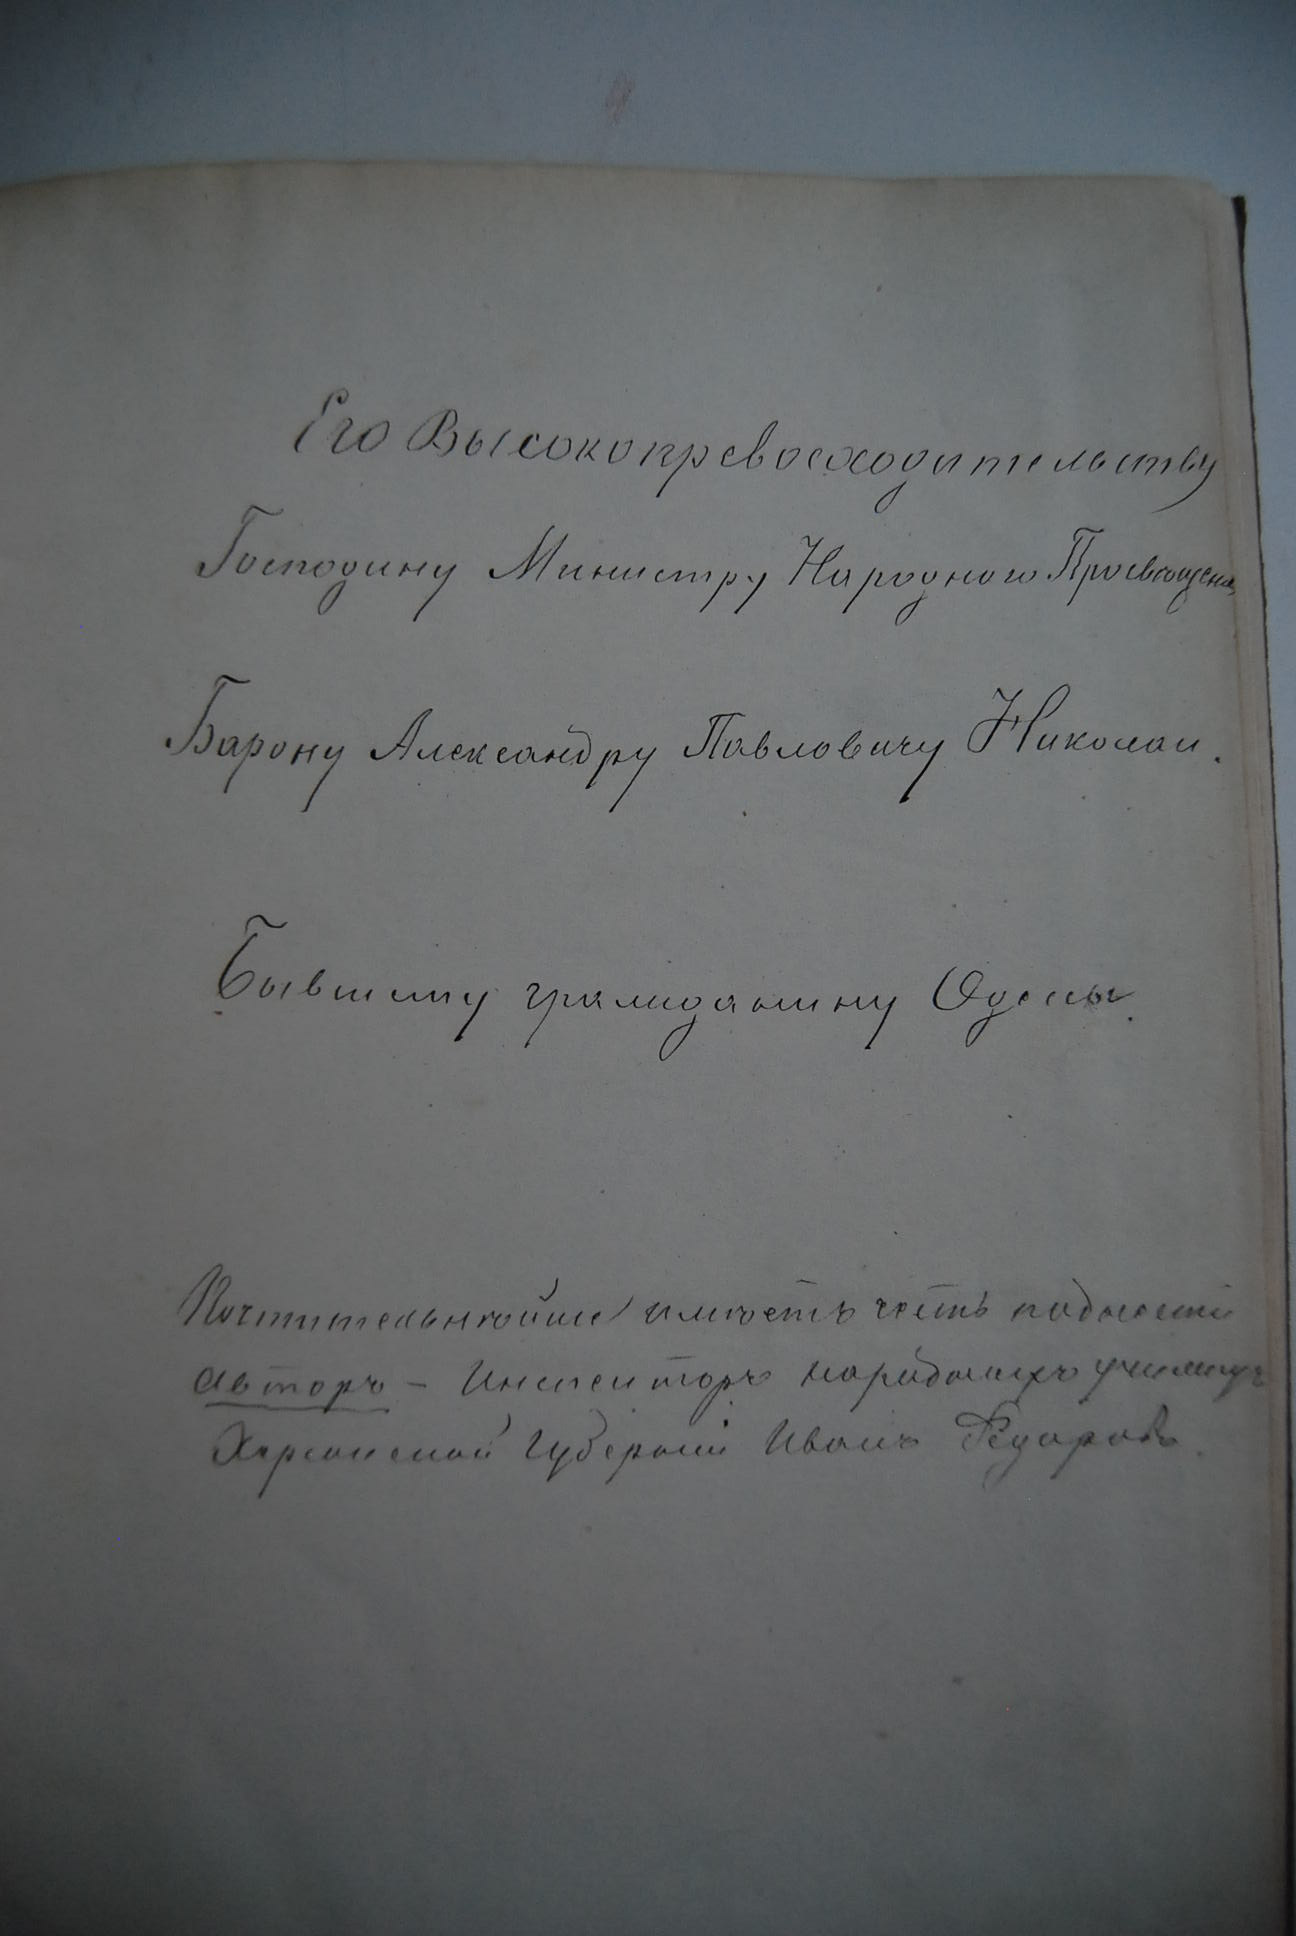 Его Высокопревосходительству
Господину Министру Народного Просвѣщенія
Барону Александру Павловичу Николаи.
Бывшему гражданину Одессы.
Почтительнѣйше имѣетъ честь поднести
авторъ – Инспекторъ народныхъ училищъ
Херсонской губерніи Иванъ Ѳедоровъ.